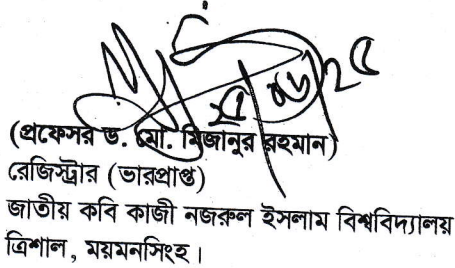 (প্রফেসর ড. মো. মিজানুর রহমান)
রেজিস্ট্রার (ভারপ্রাপ্ত)
জাতীয় কবি কাজী নজরুল ইসলাম বিশ্ববিদ্যালয়
ত্রিশাল, ময়মনসিংহ।